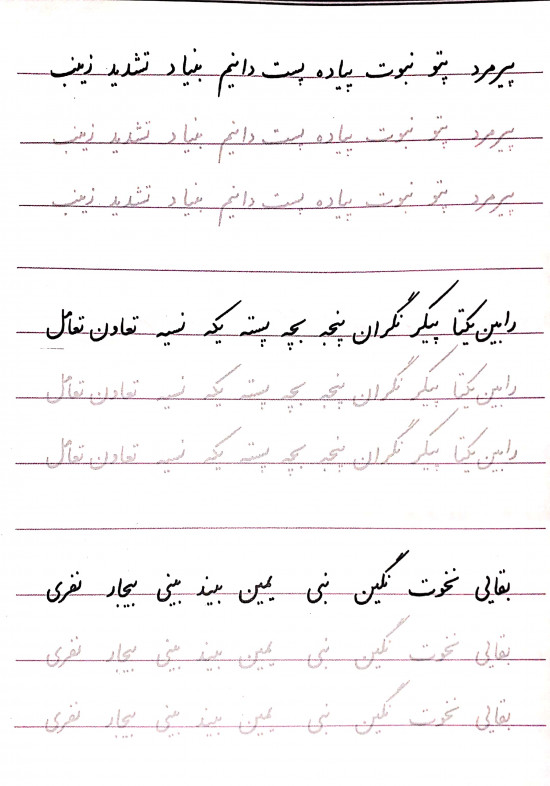 پیرمرد پتو نبوت پیاده پست دانیم بنیاد تشدید زینب
پیرمرد پتو نبوت پیاده پست دانیم بنیاد تشدید زینب
پیرمرد پتو نبوت پیاده پست دانیم بنیاد تشدید زینب
رابین یکتا پیکر نگران پنجه بچه پسته یکه نسیه تعاون تعامل
رابین یکتا پیکر نگران پنجه بچه پسته یکه نسیه تعاون تعامل
رابین یکتا پیکر نگران پنجه بچه پسته یکه نسیه تعاون تعامل
بقایی نخوت نگین نبی یمین ببیند بینی بیجار نفری
بقایی نخوت نگین نبی یمین ببیند بینی بیجار نفری
بقایی نخوت نگین نبی یمین ببیند بینی بیجار نفری